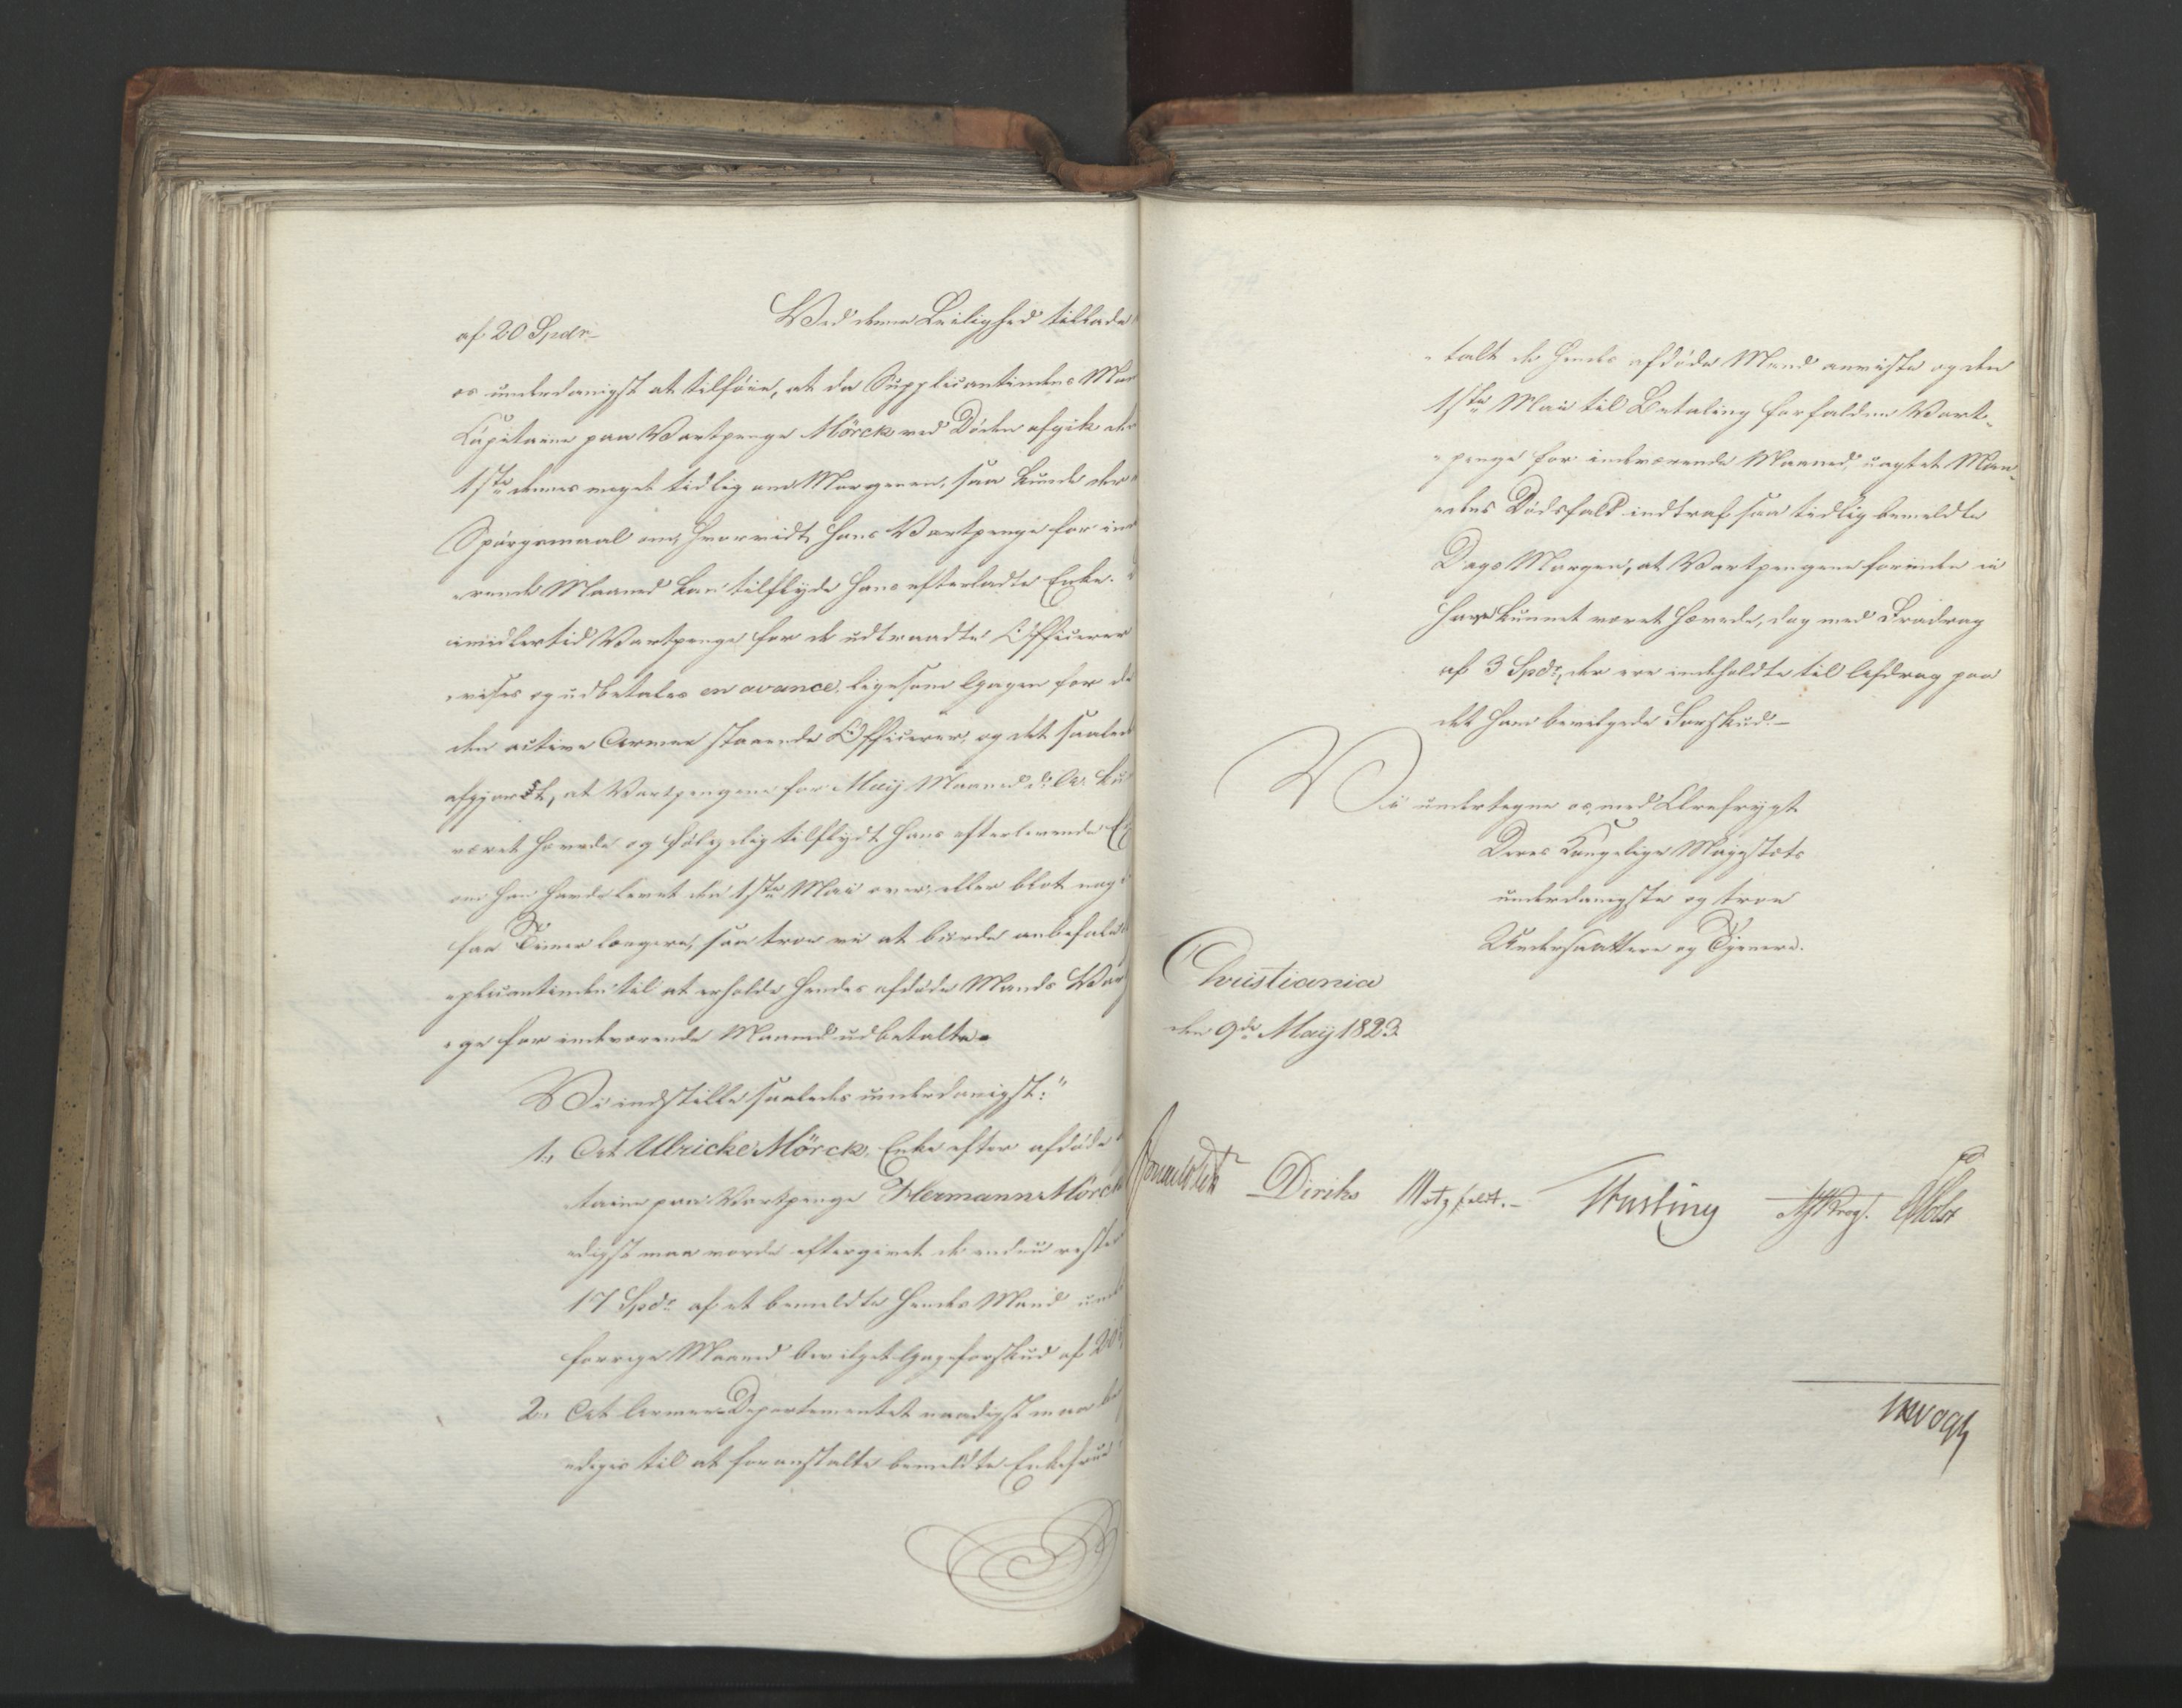 af 20 Spdr.
Ved denne Leilighed tillade
os underdanigst at tilføie, at da Supplicantindens Man
Capitaine paa Vartpenge Mörck ved Døden afgik de
1ste dennes meget tidlig om Morgenen, saa kunde der
Spørgsmaal om, hvorvidt hans Vartpenge for in
rende Maaned kan tilflyde hans efterladte Enke.
imidlertid Vartpenge for de udtraadte Officierer
vises og udbetales en avance, ligesom Gagen for de
den active Armee staaende Officierer, og det saaled
afgjort, at Vartpengene for Maij Maaned d: A: ku
været hævede og følgelig tilflydt hans efterlevende E
om han havde levet den 1ste Mai over, eller blot nog
faa Timer længere, saa troe vi at burde anbefale
plicantinden til at erholde hendes afdøde Mands Var
ge for indeværende Maaned udbetalte.
Vi indstille saaledes underdanigst:
1., At Ulricke Mörck, Enke efter afdøde
taine paa Vartpenge Hermann Mörck
digst maa vorde eftergivet de endnu reste
17 Spdr. af et bemeldte hendes Mand und
forrige Maaned bevilget Gageforskud af 20
2., At Armee-Departementet naadigst maa be
diges til at foranstalte bemeldte Enkefrue
talt de hendes afdøde Mand anviste og den
1ste Mai til Betaling forfaldne Vart-
penge for indeværende Maaned, uagtet Man-
dens Dødsfald indtraf saa tidlig bemeldte
Dags Morgen, at Vartpengene forinden ei
have kunnet været hævede, dog med Fradrag
af 3 Spdr, der ere indeholdte til Afdrag paa
det ham bevilgede Forskud.-
Vi undertegne os med Ærefrygt
Deres Kongelige Majestæts
underdanigste og troe
Undersaattere og Tjenere.
Christiania
den 9de Maij 1823.
Diriks Motzfeldt.- Fasting Holst